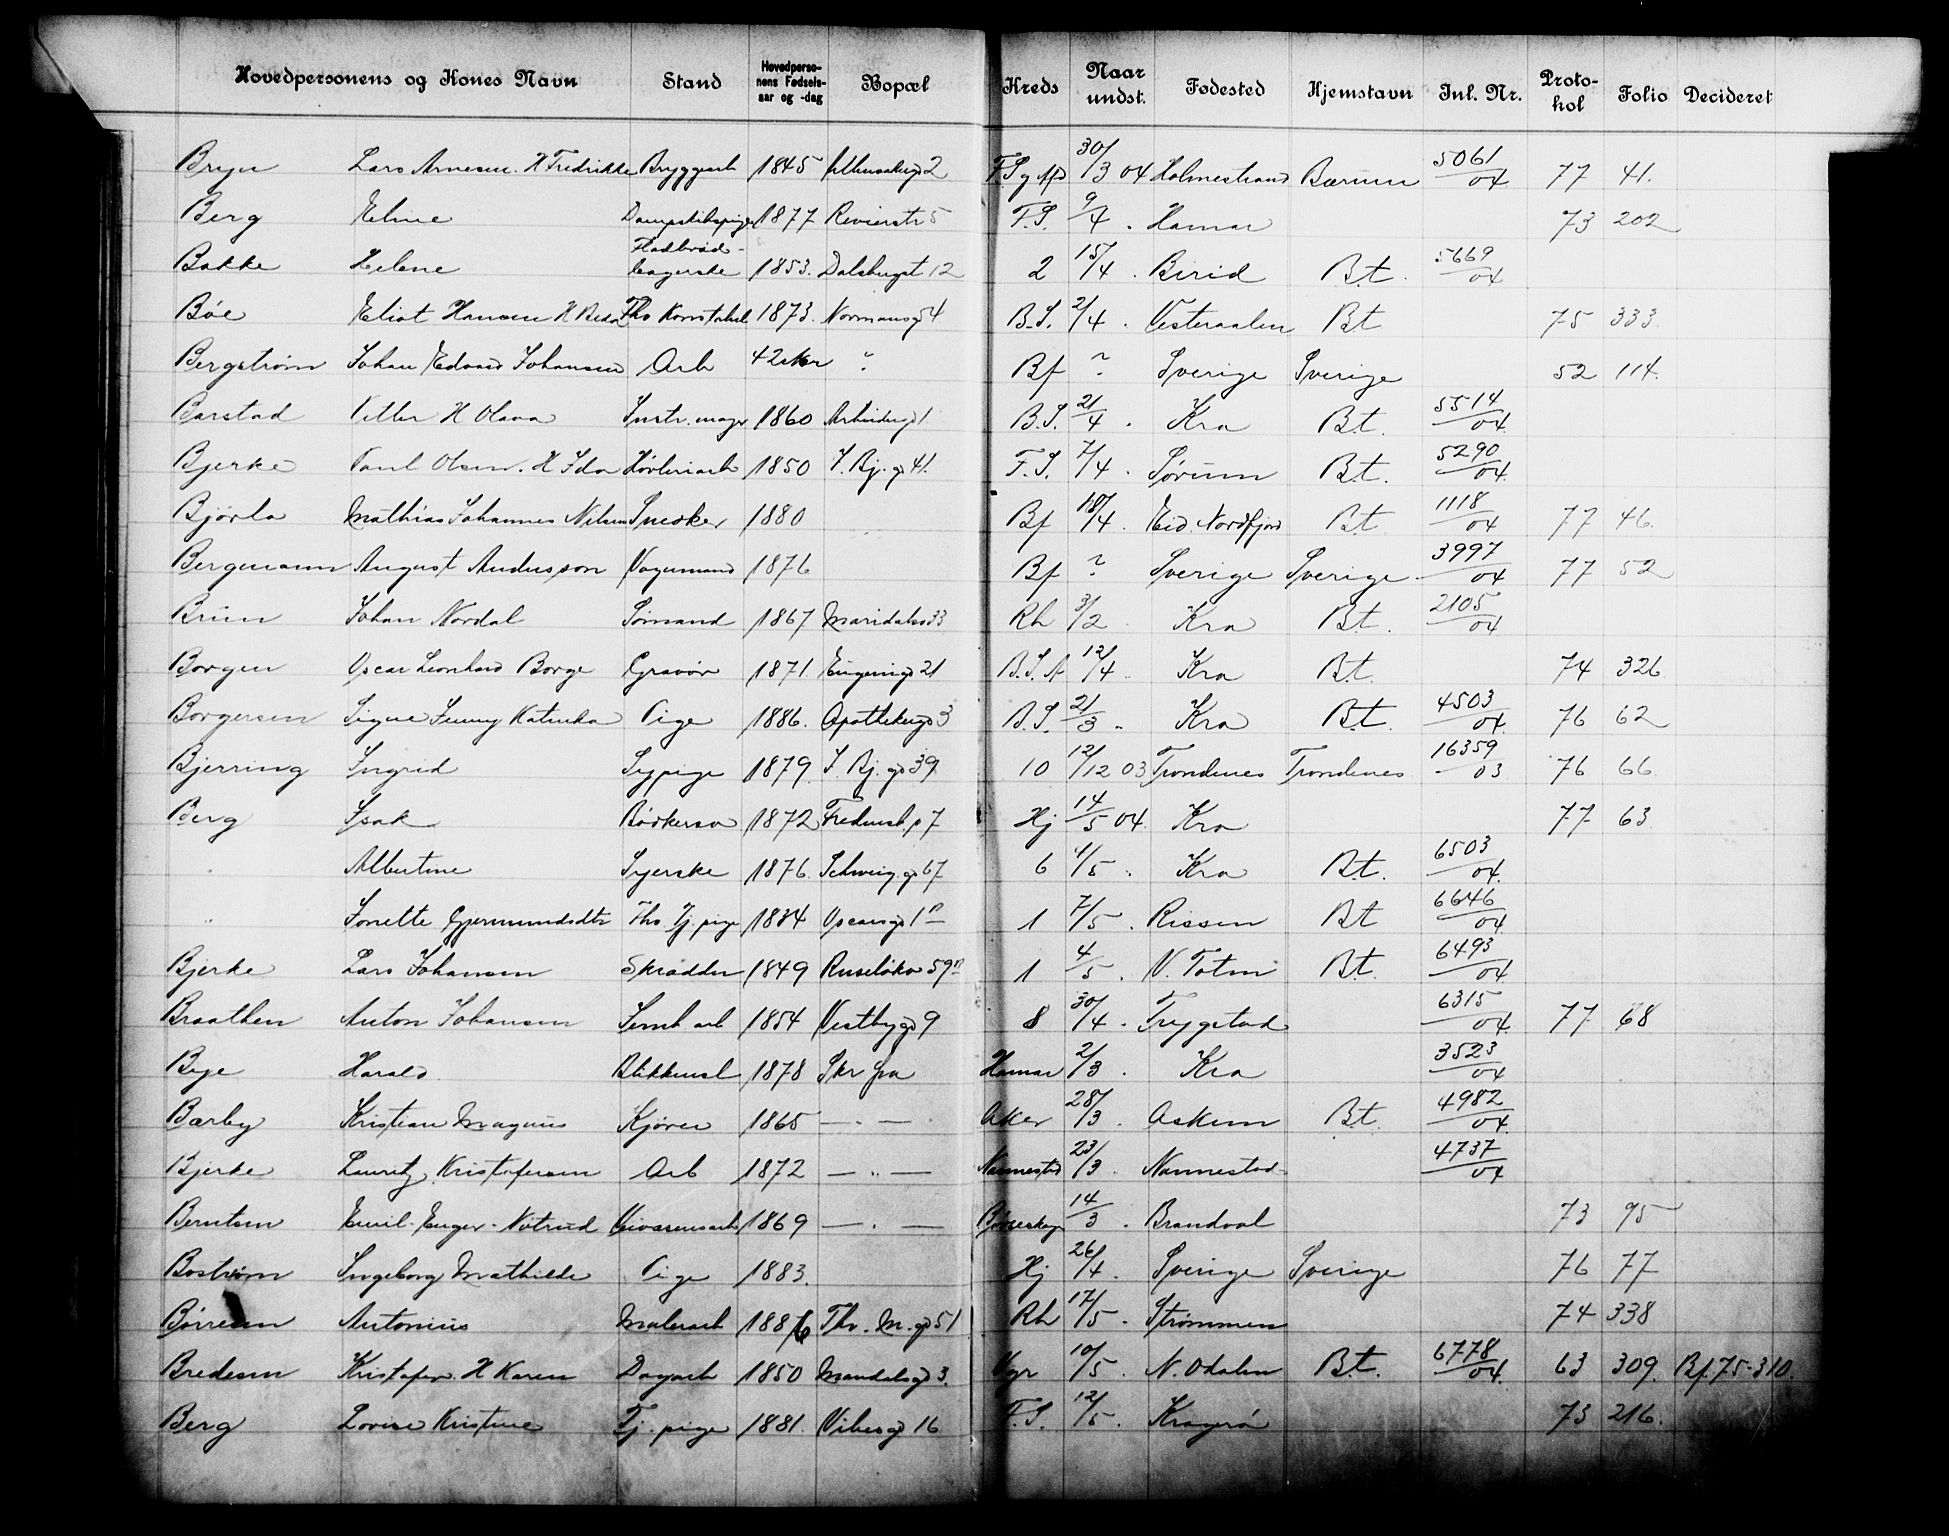 Hovedpersonens og Kones Navn Stand Hovedpersonens Fødselsaar og -dag Bopæl Kreds Naar undst. Fødested Hjemstavn Jnl. Nr. Protokol Folio Decideret
Bryn Lars Arnesen. H Fredrikke Bryggearb 1845 2 F.S 30/3 04 Holmestrand Bærum 5061/04 77 41.
Berg Eline 1877 Revierstr 5 F.S. 9/4 . Hamar 73 202
Bakke Helene Fladbrød- bagerske 1853. Dalsbergst 12 2 15/4 . Birid B.t. 5669/04
Bøe Eliot Hansen H Fhv Konstabel 1873. Normansg 54 B.S. 2/4 . Vesteraalen Bt 75 333.
Bergstrøm Johan Edvard Johansen Arb 42 aar " Bf ? Sverige Sverige 52 114.
Barstad H Olava Instr. mager 1860 Arbeiderg 1 B.S. 21/4 . Kra B.t. 5514/04
Bjerke Paul Olsen. H Ida Høvleriarb 1850 S. Bj. g 41. F.S. 7/4 . Sørum B.t. 5290/04
Bjørlo Mathias Johannes Nilsen Snedker 1880 Bf 18/4 . Eid. Nordfjord Bt 1118/04 77 46.
Bergmann August Andersson Vognmand 1876 Bf ? Sverige Sverige 3997/04 77 52
Brun Johan Nordal Sømand 1867 Maridalsv 33 Rh 3/2 Kra B.t. 2105/04
Borgen Oscar Leonhard Borge Gravør 1871. Eugenig 21 B.S. A 12/4 .. Kra B.t. 74 326
Borgersen Signe Jenny Katinka Pige 1886. Apothekerg 3 B.S. 21/3 .. Kra B.t. 4503/04 76 62
Bjerring Ingrid Sypige 1879. S. Bj. g 39 10 12/12 03 Trondenes Trondenes 16359/03 76 66
Berg Isak Bødkersv 1872 Fredensb. 7 Hj 14/5 04 Kra 77 63
" Albertine Syerske 1876. Schweig. g 67 6 4/5 . Kra B.t. 6503/04
" Jonette Gjermundsdtr Fhv. Tj. pige 1834 Oscarsg 1 1 7/5 . Rissen Bt 6646/04
Bjerke Lars Johansen Skrædder 1849 Ruseløkv 59 1 4/5 . V. Toten B.t. 6493/04
Braathen Anton Johansen arb 1854 Vestbyg 9 8 30/4 . Trygstad 6315/04 77 68
Bye Harald 1878 Skr fra Hamar 2/3 . Kra 3523/04
Bærby Kristian Magnus Kjører 1865 — . — Aker 28/3 . Askim B.t. 4982/04
Bjerke Lauritz Kristofersen Arb 1872 — " — Nannestad 23/3 . Nannestad 4737/04
Berntsen Emil Enger - Notrud 1869 — . — 14/3 . Brandval 73 95
Bostrøm Ingeborg Mathilde Pige 1883. Hj 26/4 . Sverige Sverige 76 77
Børresen Antonius Malerarb 1886 Thv. M. g 51 Rh 17/5 . Strømmen 74 338
Bredesen Kristofer. H Karen Dagarb 1850 Mandalsg 3. Vgr 10/5 . N. Odalen B.t. 6778/04 63 309. Bf. 75-310.
Berg Lovise Kristine Tj. pige 1881. Vibesg 16 F.S. 12/5 . Kragerø 73 216.